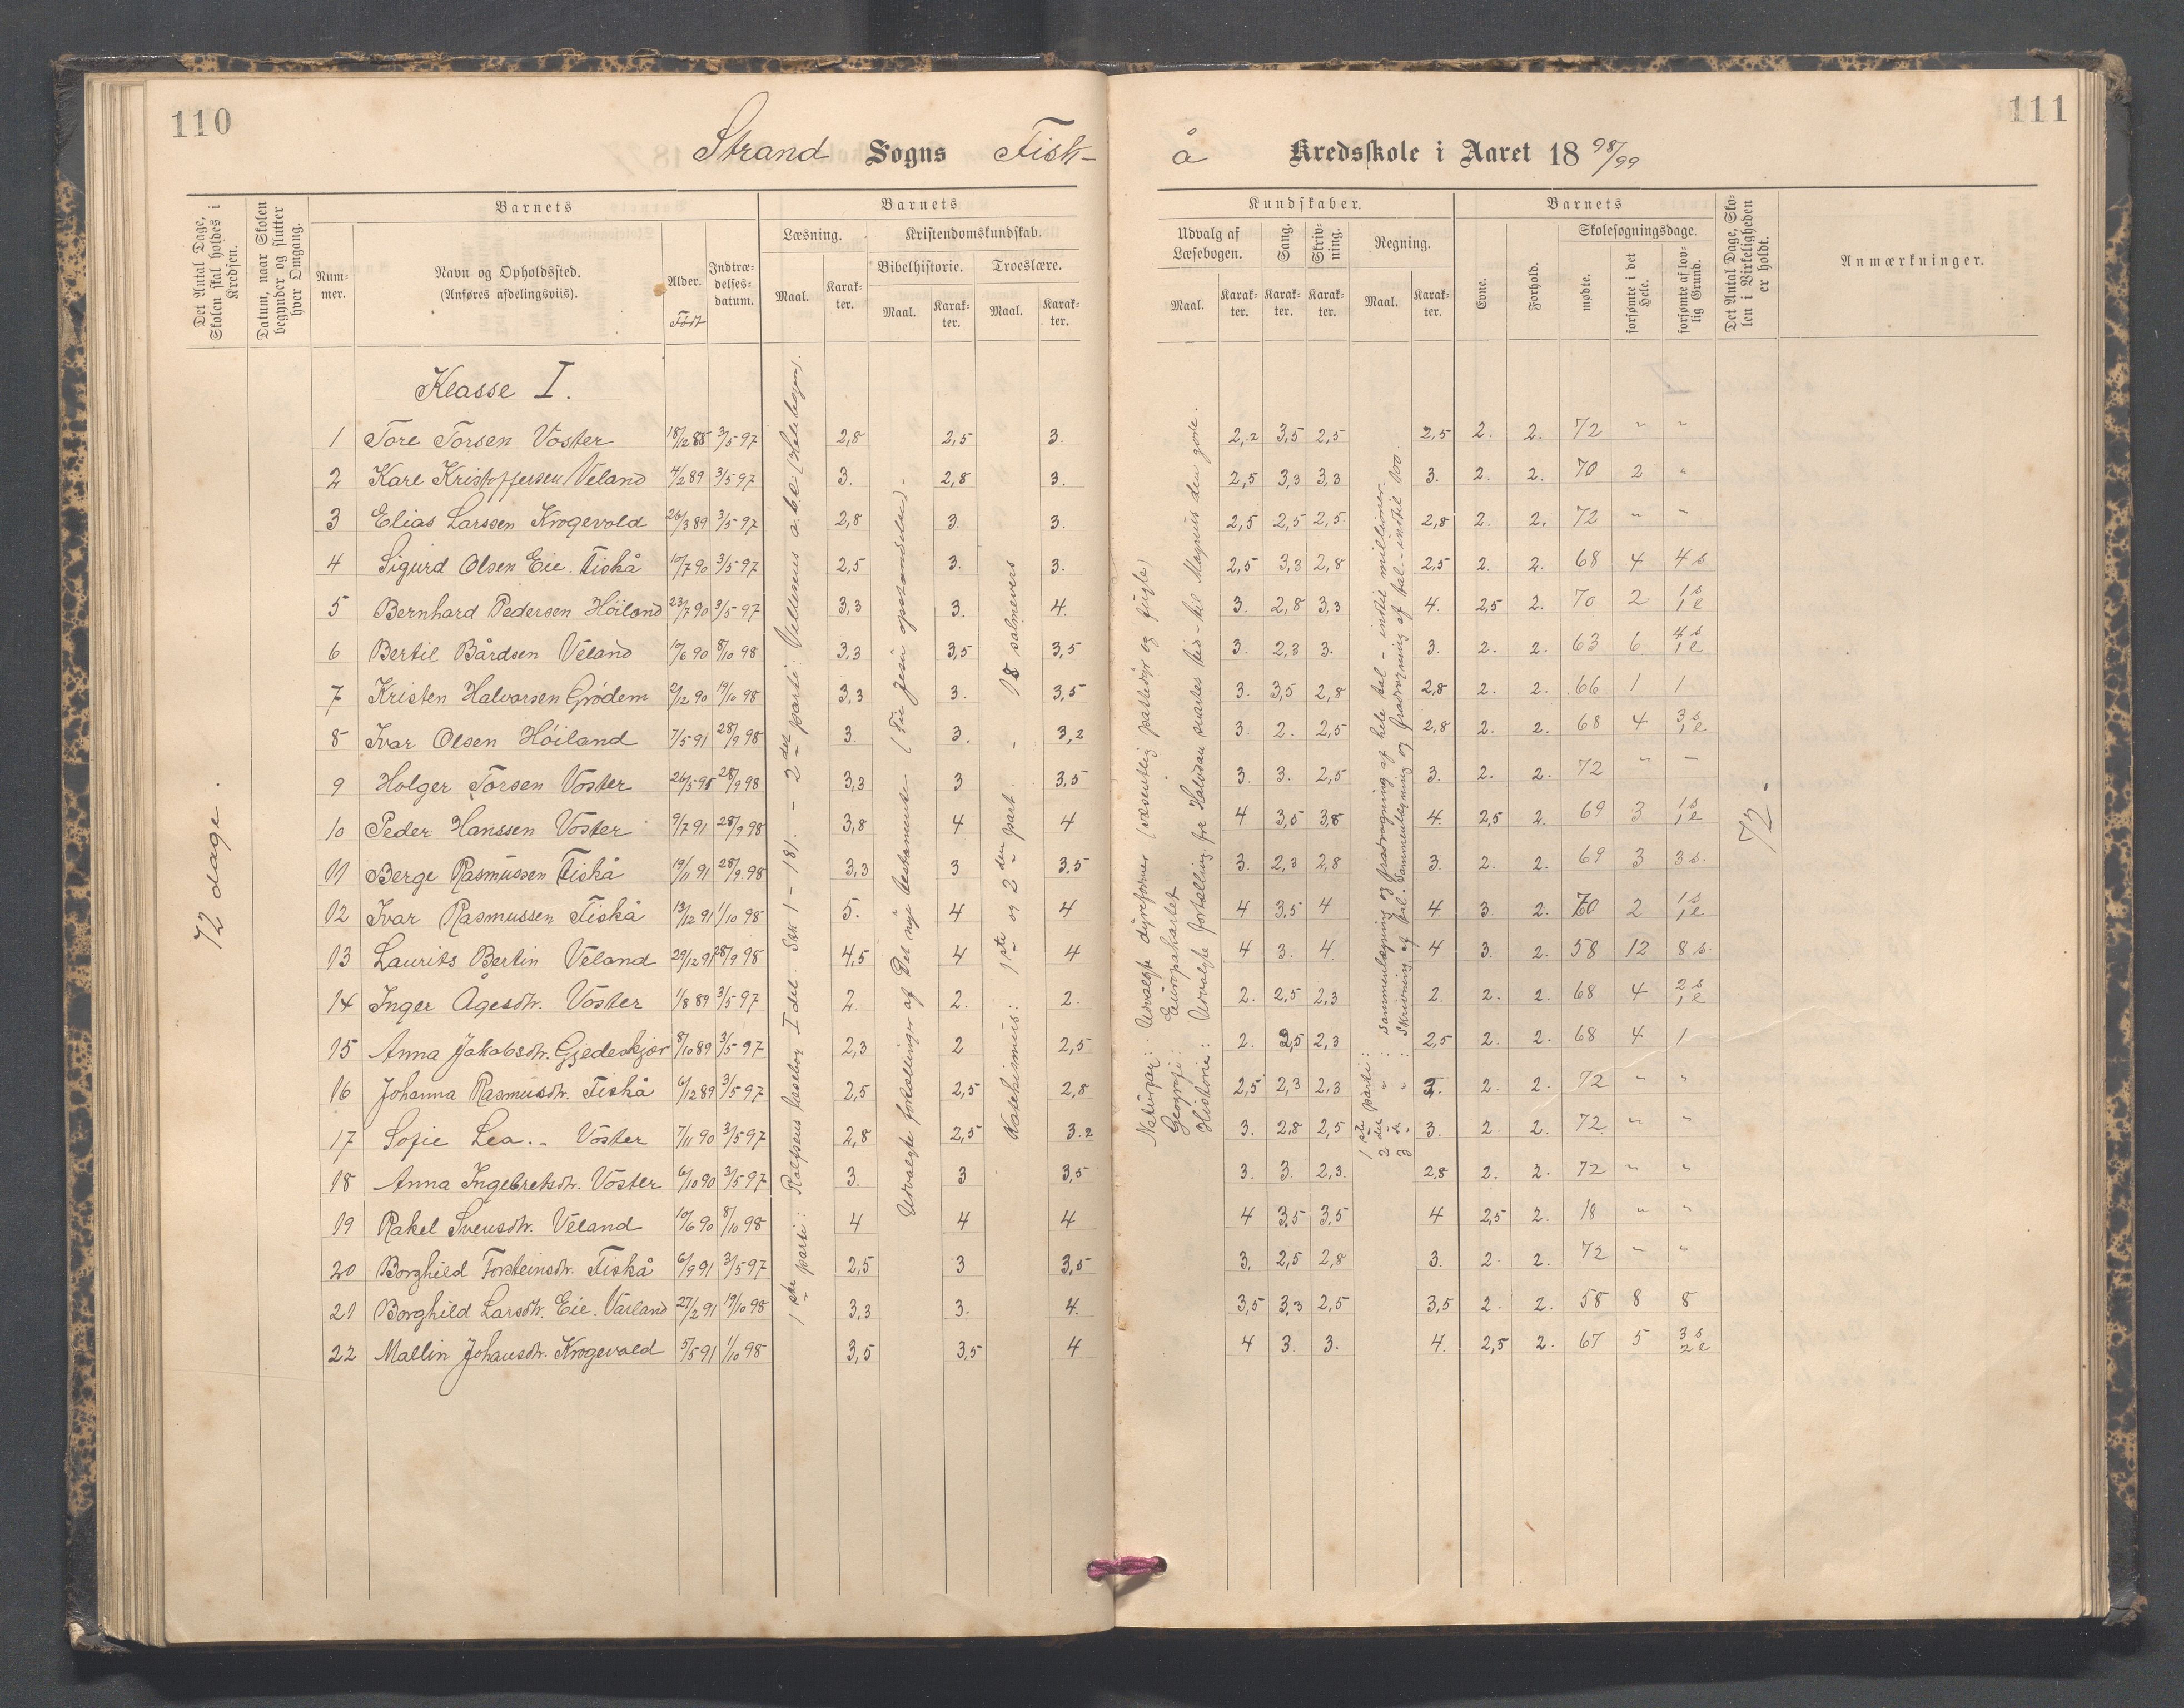 110
111
Strand Sogns Fisk-
å Kredsskole i Aaret 18 98/99
Det Antal Dage, Skolen skal holdes i Kredsen.
Datum, naar Skolen begynder og slutter hver Omgang.
Barnets
Nummer.
Navn og Opholdssted.
(Anføres afdelingsviis).
Alder.
Født
Indtrædelsesdatum.
Barnets
Læsning.
Maal.
Karakter.
Kristendomskundskab.
Bibelhistorie.
Maal.
Karakter.
Troeslære.
Maal.
Karakter.
Kundskaber.
Udvalg af Læsebogen.
Maal.
Karakter.
Sang.
Karakter.
Skrivning.
Karakter.
Regning.
Maal.
Karakter.
Barnets
Evne.
Forhold.
Skolesøgningsdage.
mødte.
forsømte i det Hele.
forsømte af lovlig Grund.
Det Antal Dage, Skolen i Virkeligheden er holdt.
Anmærkninger.
72 dage.
Klasse I.
1 Tore Torsen Voster 18/12 88 3/5 97 2,8 2,5 3. 2,2 3,5 2,5 2,5 2. 2. 72 " "
2 Karl Kristoffersen Veland 4/2 89 3/5 97 3. 2,8 3. 2,5 3,3 3,3 3. 2. 2. 70 2 "
3 Elias Larssen Krogevold 26/3 89 3/5 97 2,8 3. 3. 2,5 2,5 2,5 2,8 2. 2. 72 " "
4 Sigurd Olsen Eie. Fiskå 10/7 90 3/5 97 2,5 3. 3. 2,5 3,3 2,8 2,5 2. 2. 68 4 4 s
5 Bernhard Pedersen Höiland 23/7 90 3/5 97 3,3 3. 4. 3. 2,8 3,3 4. 2,5 2. 70 2 1 s 1 l
6 Bertil Bårdsen Veland 10/6 90 8/10 98 3,3 3,5 3,5 3. 2,3 3. 3. 2. 2. 63 6 4 s 1 l
7 Kristen Halvorsen Grödem 2/12 90 19/10 98 3,3 3. 3,5 3. 3,5 2,8 2,8 2. 2. 66 1 1
8 Ivar Olsen Höiland 7/5 91 28/9 98 3. 3. 3,2 3. 2. 2,5 2,8 2. 2. 68 4 3 s 1 l
9 Holger Torsen Voster 26/5 91 28/9 98 3,3 3 3,5 3. 3. 2,5 3. 2. 2. 72 " "
10 Peder Hanssen Voster 9/7 91 28/9 98 3,8 4 4 4 3,5 3,8 4. 2,5 2. 69 3 1 s 1 l
11 Berge Rasmussen Fiskå 19/11 91 28/9 98 3,3 3 3,5 3. 2,3 2,8 3. 2. 2. 69 3 3 s.
12 Ivar Rasmussen Fiskå 13/12 91 1/10 98 5. 4 4 4 3,5 4 4. 3. 2. 70 2 1 s 1 l
13 Laurits Bertin Veland 29/12 91 28/9 98 4,5 4 4 4 3. 4. 4 3. 2. 58 12 8 s.
14 Inger Ågesdtr. Voster 1/8 89 3/5 97 2. 2. 2. 2. 2,5 2,3 2. 2. 2. 68 4 2 s 1 l
15 Anna Jakobsdtr. Gjedeskjær 8/10 89 3/5 97 2,3 2 2,5 2. 2,5 2,3 2,5 2. 2. 68 4 1
16 Johanna Rasmusdtr. Fiskå 6/12 89 3/5 97 2,5 2,5 2,8 2,5 2,3 2,3 3. 2. 2. 72 " "
17 Sofie Lea. - Voster 7/11 90 3/5 97 2,8 2,5 3.2 3. 2,8 2,5 3. 2. 2. 72 " "
18 Anna Ingebretsdtr. Voster 6/10 90 3/5 97 3. 3 3,5 3. 3. 2,3. 2,8 2. 2. 72 " "
19 Rakel Svensdtr. Veland 10/6 90 8/10 98 4 4 4 4 3,5 3,5 4 2,5 2. 18 " "
20 Borghild Torsteinsdtr. Fiskå 6/9 91 3/5 97 2,5 3 3,5 3. 2,5 2,8 3. 2. 2. 72 " "
21 Borghild Larsdtr. Eie. Varland 27/2 91 19/10 98 3,3 3. 4. 3,5 3,3 2,5 3,5 2. 2. 58 8 8
22 Mallin Johansdtr. Krogevold 5/5 91 1/10 98 3,5 3,5 4 4 3. 3. 4. 2,5 2. 67 5 3 s 2 l
1ste parti: Rolfsens læsebog I del. Stk 1 - 181. - 2det parti: Vellesens a.b.c (Hele bogen).
Udvalgte fortællinger af Det nye testamente (Til Jesu opstandelse) -
Katekismus: 1ste og 2den part. - 18 salmevers
Naturfag: Udvalgte dyreformer (væsentlig pattedyr og fugle)
Geografi: Europakartet
Historie: Udvalgte fortælling. fra Halvdan svartes tid - til Magnus den gode.
1ste parti: Sammenlægning og fradragning af hele tal - indtil millioner.
2det " : Sammenlægning og fradragning af tal - indtil 100.
3de " : Skrivning af tal.
72.